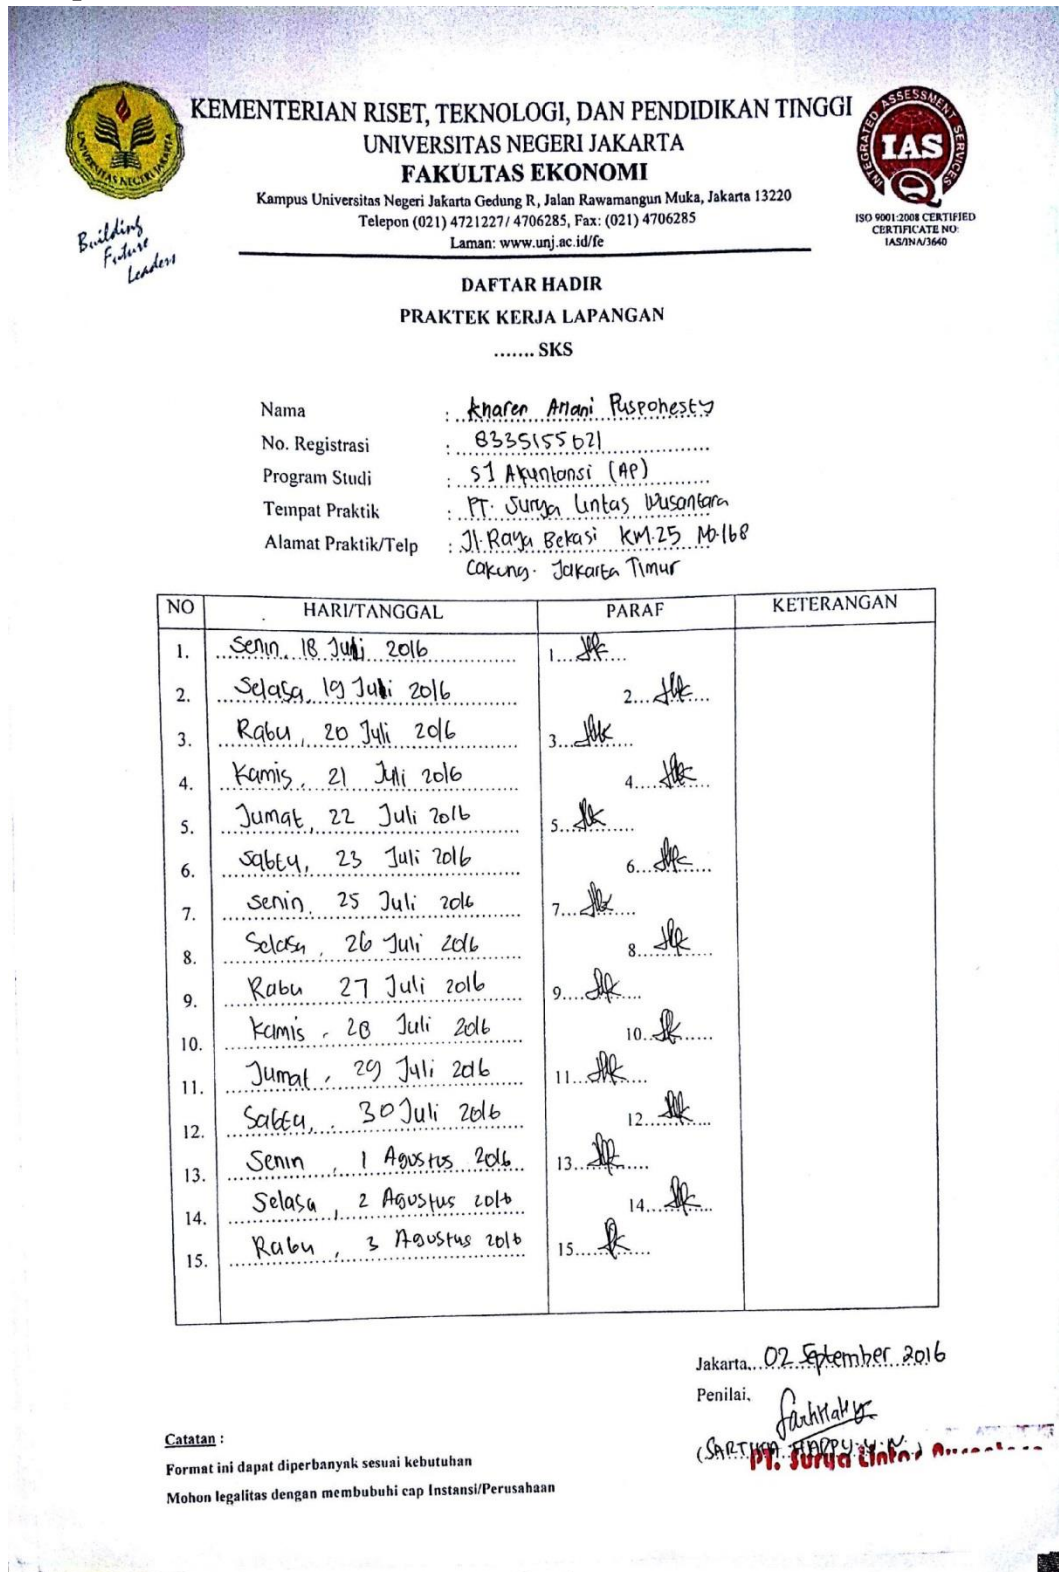 KEMENTERIAN RISET, TEKNOLOGI, DAN PENDIDIKAN TINGGI
UNIVERSITAS NEGERI JAKARTA
FAKULTAS EKONOMI
Kampus Universitas Negeri Jakarta Gedung R, Jalan Rawamangun Muka, Jakarta 13220
Telepon (021) 4721227/ 4706285, Fax: (021) 4706285
Laman: www.unj.ac.id/fe
UNIVERSITAS NEGERI JAKARTA
Building
Future
Leaders
INTEGRATED ASSESSMENT SERVICES
IAS
ISO 9001:2008 CERTIFIED
CERTIFICATE NO:
IAS/INA/3640
DAFTAR HADIR
PRAKTEK KERJA LAPANGAN
....... SKS
Nama : Kharen Ariani Puspohesty
No. Registrasi : 8335155021
Program Studi : S1 Akuntansi (AP)
Tempat Praktik : PT. Surya Lintas Nusantara
Alamat Praktik/Telp : Jl. Raya Bekasi KM.25 No.168
Cakung. Jakarta Timur
NO HARI/TANGGAL PARAF KETERANGAN
1. Senin, 18 Juli 2016 1.
2. Selasa, 19 Juli 2016 2.
3. Rabu, 20 Juli 2016 3.
4. Kamis, 21 Juli 2016 4.
5. Jumat, 22 Juli 2016 5.
6. Sabtu, 23 Juli 2016 6.
7. Senin, 25 Juli 2016 7.
8. Selasa, 26 Juli 2016 8.
9. Rabu 27 Juli 2016 9.
10. Kamis, 28 Juli 2016 10.
11. Jumat, 29 Juli 2016 11.
12. Sabtu, 30 Juli 2016 12.
13. Senin, 1 Agustus 2016 13.
14. Selasa, 2 Agustus 2016 14.
15. Rabu, 3 Agustus 2016 15.
Jakarta, 02 September 2016
Penilai,
HAPPY
PT. Surya Lintas
Catatan :
Format ini dapat diperbanyak sesuai kebutuhan
Mohon legalitas dengan membubuhi cap Instansi/Perusahaan